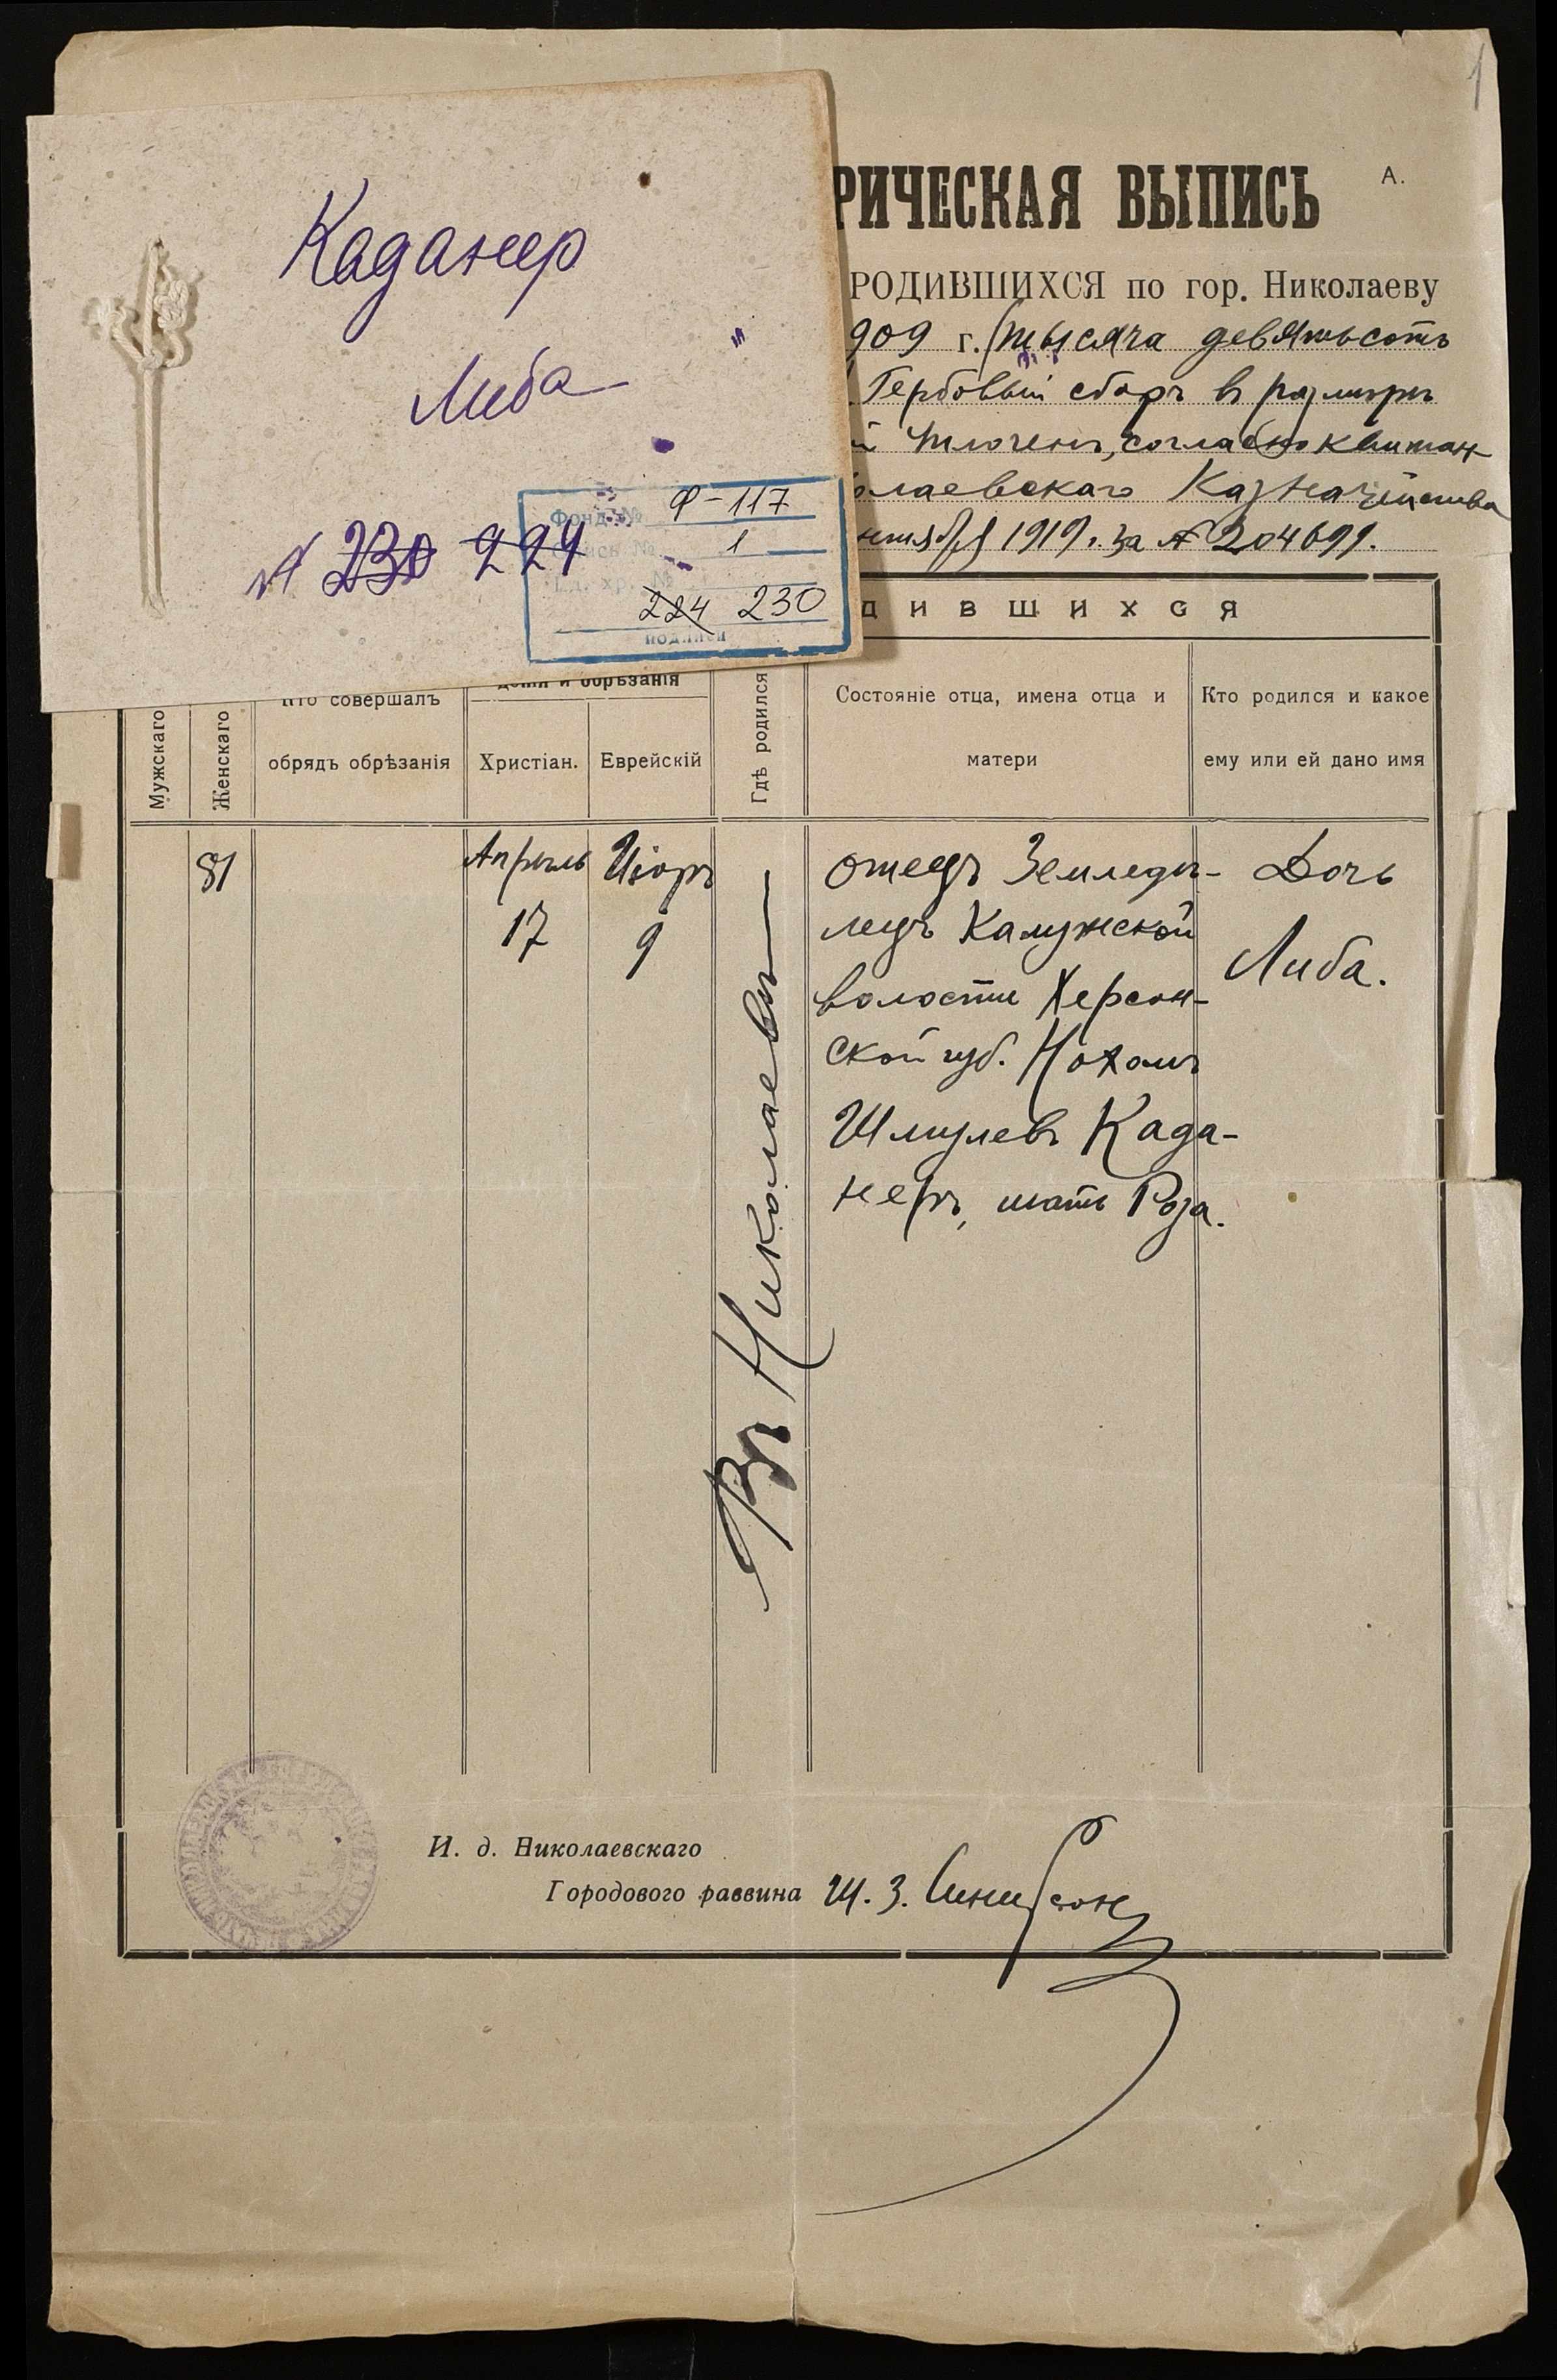 1
Каданер
Либа
№ 230 229
Фонд №
Ф-117
1
Ед. хр. №
224 230
подписи
РИЧЕСКАЯ ВЫПИСЬ
А.
РОДИВШИХСЯ по гор. Николаеву
909 г. (тысяча девятьсотъ
Гербовый сборъ в размѣрѣ
й уплоченъ, согласно квитан
олаевскаго Казначейства
нтября 1919 г. за № 204699.
Д И В Ш И Х С Я
Мужскаго
Женскаго
Кто совершалъ
обрядъ обрѣзанія
денія и обрѣзанія
Христіан.
Еврейскій
Гдѣ родился
Состояніе отца, имена отца и
матери
Кто родился и какое
ему или ей дано имя
81
Апрѣль
17
Иіоръ
9
Въ Николаевѣ
отецъ Земледѣ-
лецъ Калужской
волости Херсон-
ской губ. Нохомъ
Шмулевъ Када-
неръ, мать Роза.
Дочь
Либа.
И. д. Николаевскаго
Городового раввина Ш. З.